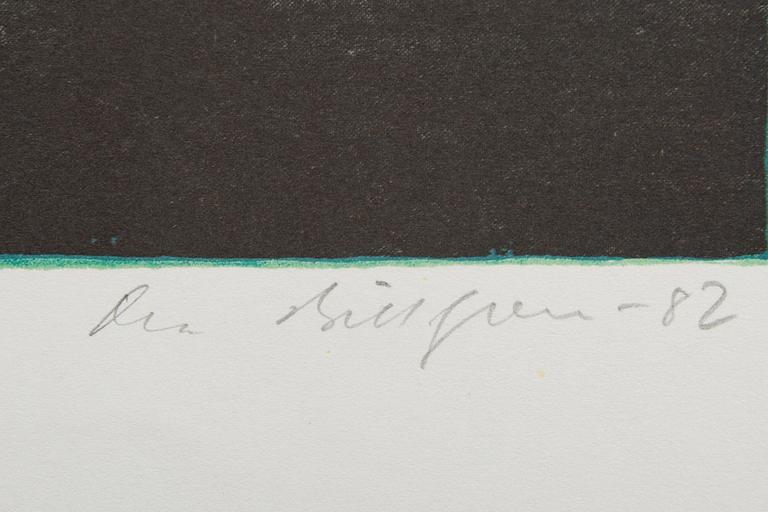 Ola Billgren -82